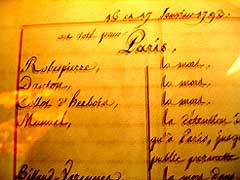 16 et 17 Janvier 1793.
Paris.
Robespierre, la mort.
Danton, la mort.
Collot d'Herbois, la mort.
Manuel, la détention d
qu'à Paix, jusq
public
Billaud-Varennes la mort dans